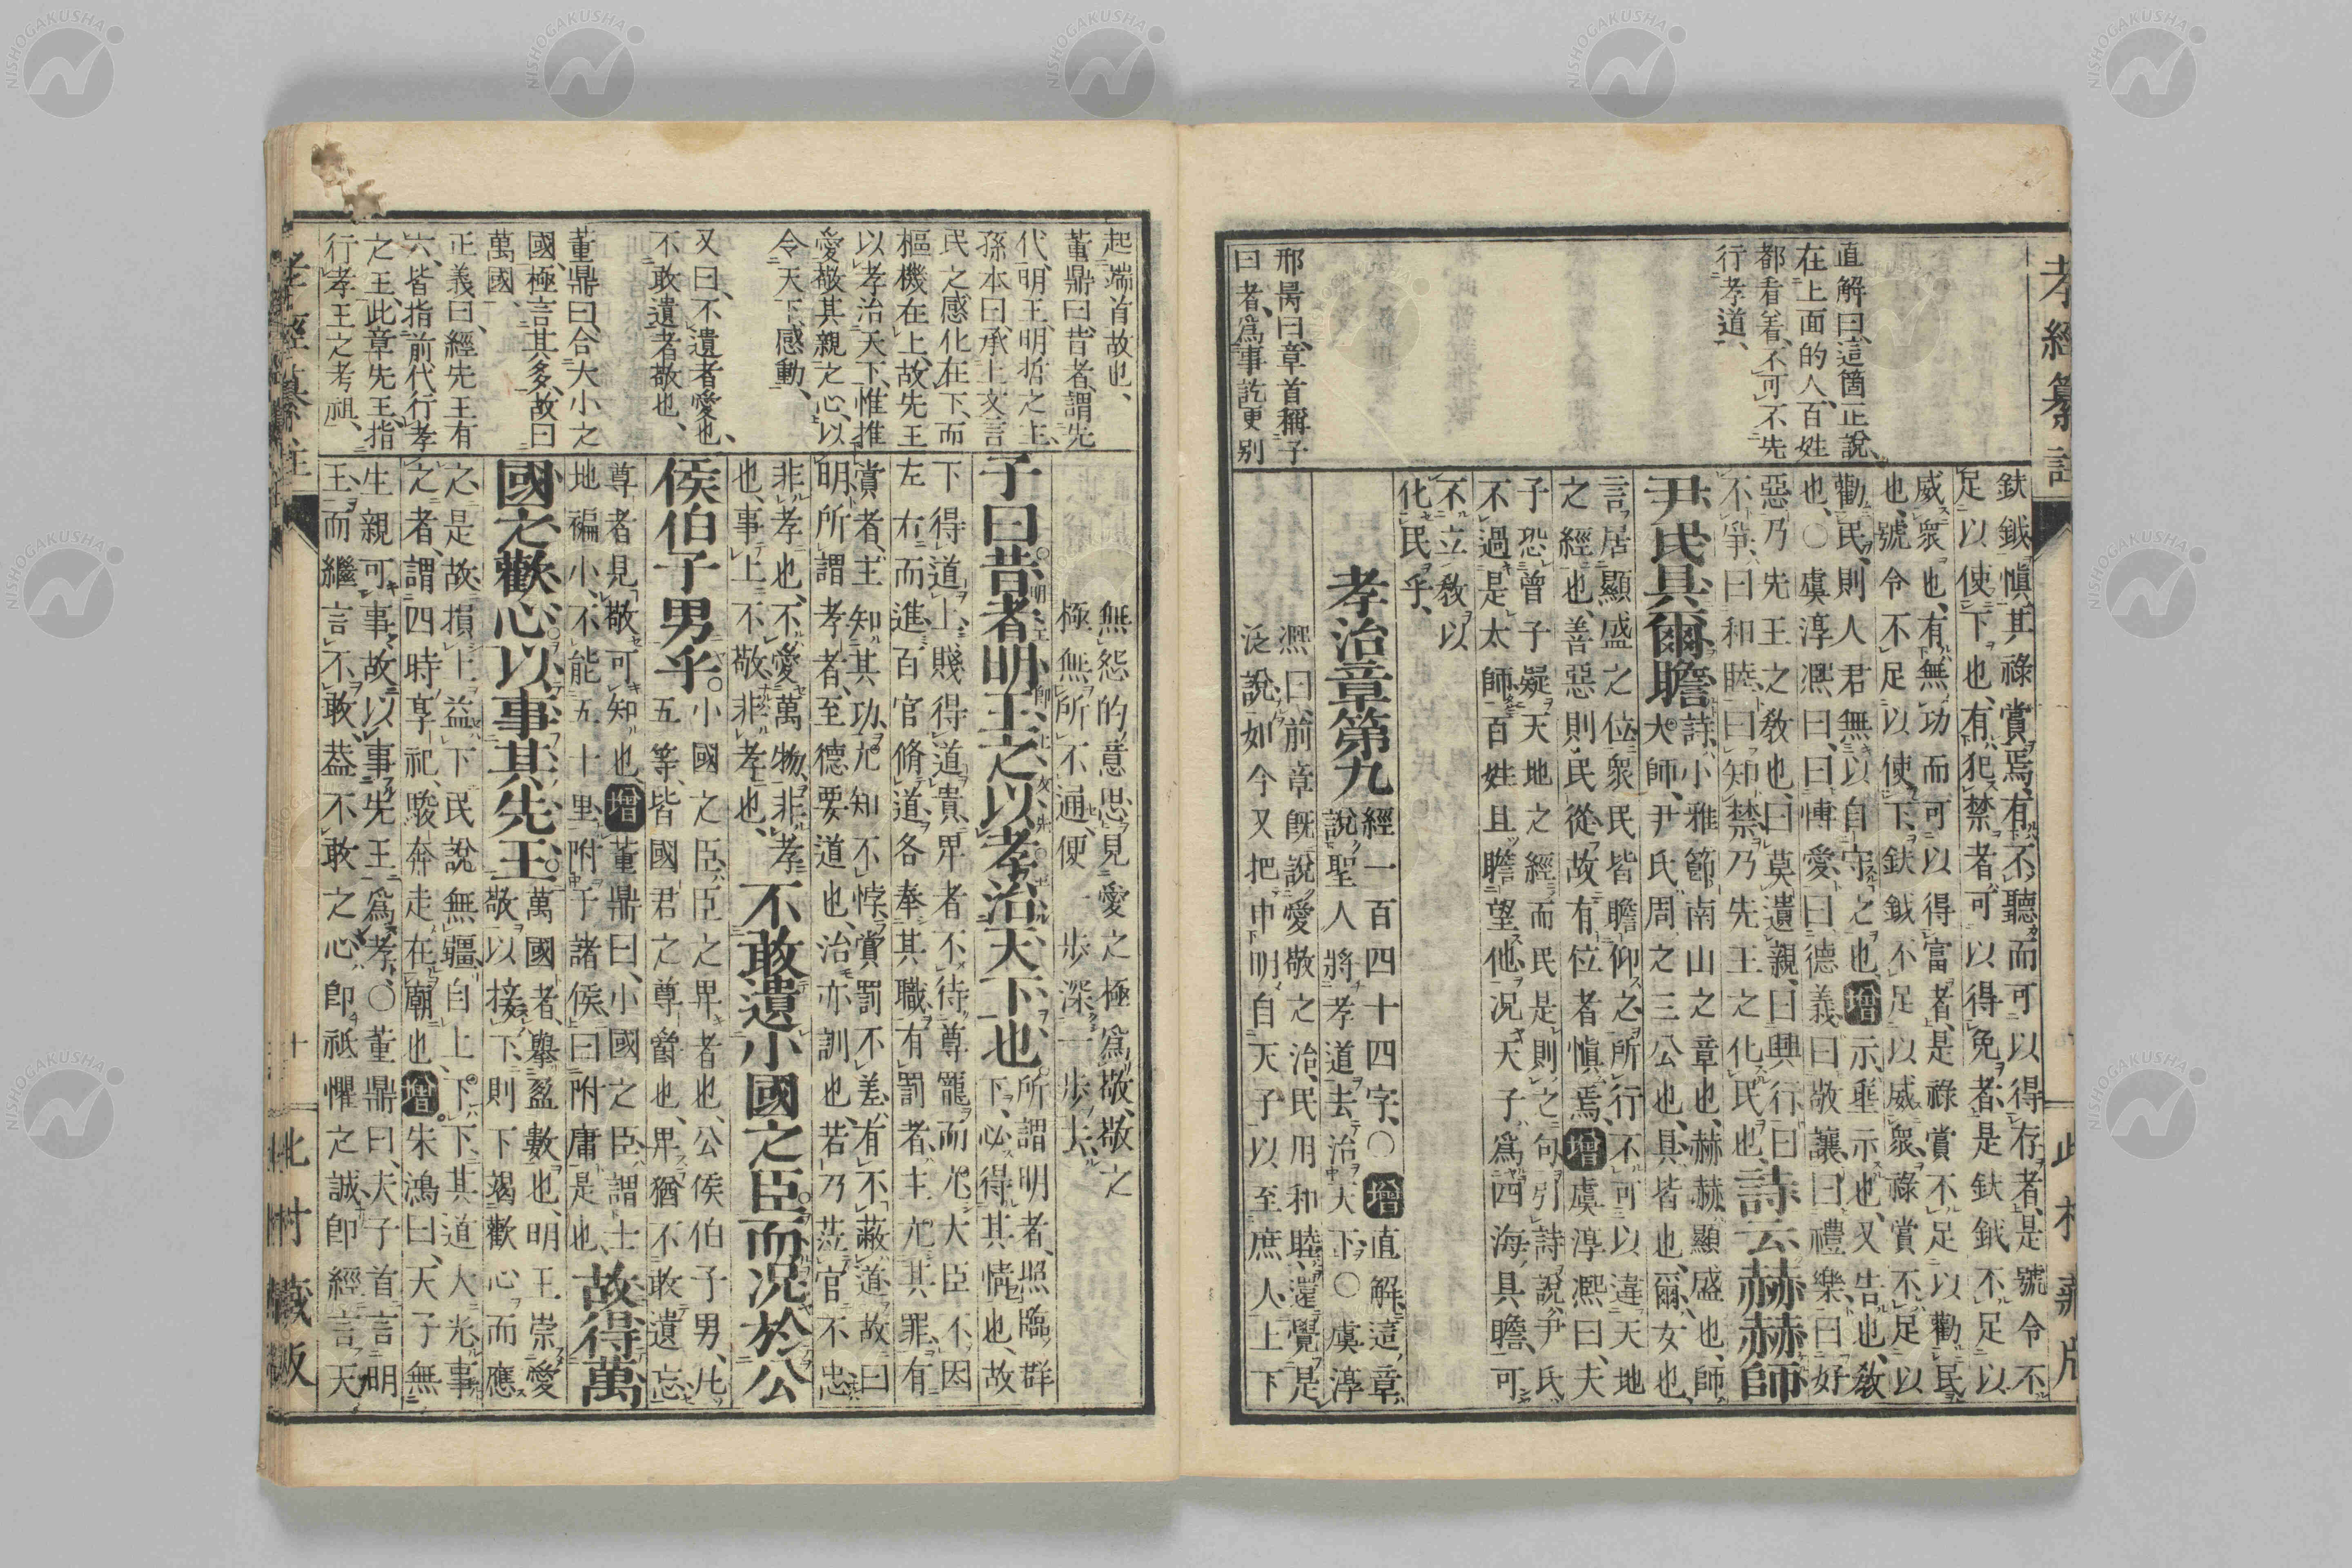 孝經纂註
直解曰、這箇正說
在上面的人、百姓
都看着、不可不先
行孝道、
邢昺曰、章首稱子
曰者、爲事訖更別
鈇鉞愼其祿賞焉、有不聽而可以得存者、是號令不
足以使下也、有犯禁者、可以得免者、是鈇鉞不足以
威衆也、有無功而可以得富者、是祿賞不足以勸民
也、號令不足以使下、鈇鉞不足以威衆、祿賞不足以
勸民、則人君無以自守之也、增示、垂示也、又告也、敎
也、○虞淳熈曰、曰博愛、曰德義、曰敬讓、曰禮樂、曰好
惡乃先王之敎也、曰莫遺親、曰興行、曰
不爭、曰和睦、曰知禁、乃先王之化民也、詩云赫赫師
尹民具爾瞻詩、小雅節南山之章也、赫赫、顯盛也、師、
大師、尹氏、周之三公也、具、皆也、爾、女也、
言居顯盛之位、衆民皆瞻仰之、所行不可以違天地
之經也、善惡則民從、故有位者愼焉、增虞淳熈曰、夫
子恐曾子疑天地之經、而民是則之句、引詩說、尹氏
不過是太師、百姓且瞻望他、况天子爲四海具瞻、可
不立敎以
化民乎、
孝治章第九經一百四十四字、○增直解、這章、
說聖人將孝道去治天下、○虞淳
熈曰、前章旣說愛敬之治、民用和睦、還覺是
泛說、如今又把申明、自天子以至庶人、上下
無怨的意思、見愛之極爲敬、敬之
極無所不通、便一步深一步去、
起端首故也、
董鼎曰、昔者、謂先
代、明王、明哲之主、
孫本曰、承上文言
民之感化在下、而
樞機在上、故先王
以孝治天下、惟推
愛敬其親之心、以
令天下感動、
又曰、不遺者愛也、
不敢遺者敬也、
董鼎曰、合大小之
國、極言其多、故曰
萬國、
正義曰、經先王有
六、皆指前代行孝
之王、此章先王、指
行孝王之考祖、
子曰昔者明王之以孝治天下也、所謂明者、照臨群
下、必得其情也、故
下得道上、賤得道貴、卑者不待尊寵而尤、大臣不因
左右而進、百官脩道、各奉其職、有罰者、主亢其罪、有
賞者、主知其功、尤知不悖、賞罰不差、有不蔽道、故曰
明、所謂孝者、至德要道也、治亦訓也、若乃蒞官不忠
非孝也、不愛萬物、非孝
也、事上不敬、非孝也、不敢遺小國之臣而况於公
侯伯子男乎、○小國之臣、臣之卑者也、公侯伯子男、凡
五等、皆國君之尊爵也、卑猶不敢遺忘、
尊者見敬可知也、增董鼎曰、小國之臣、謂士
地褊小、不能五十里、附于諸侯、曰附庸是也、故得萬
國之歡心、以事其先王、萬國者、擧盈數也、明王崇愛
敬以接下、則下竭歡心而應
之、是故損上益下、民說無疆、自上下下、其道大光、事
之者、謂四時享祀、駿奔走在廟也、增朱鴻曰、天子無
生親可事、故以事先王爲孝、○董鼎曰、夫子首言明
王、而繼言不敢、葢不敢之心、卽祗懼之誠、卽經言天
孝經纂註
十一
北村藏版
NISHOGAKUSHA